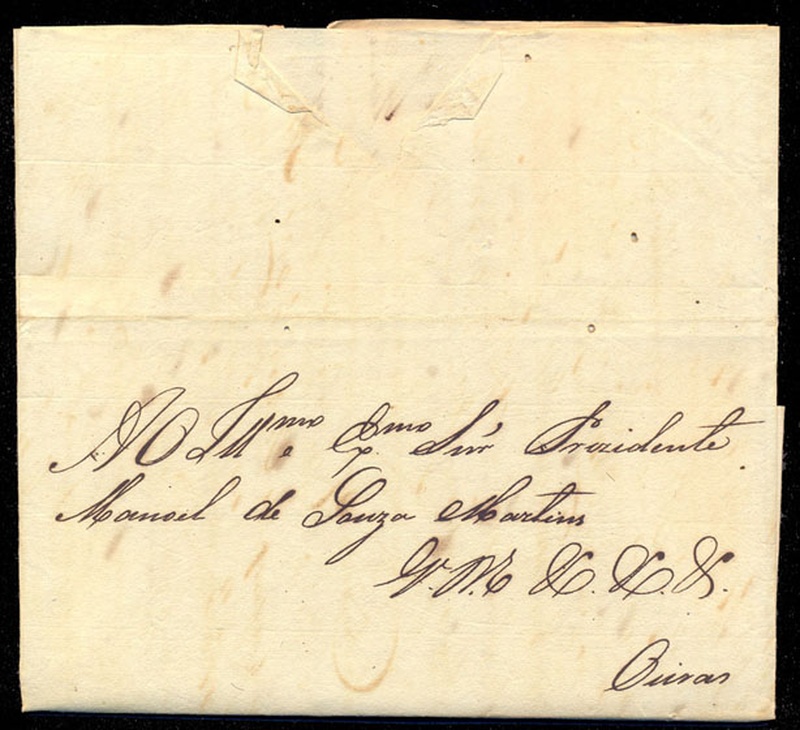 AO Ill.mo e Ex.mo Snr Prezidente
Manoel de Souza Martins
G. M.e &. &. &.
Oeiras